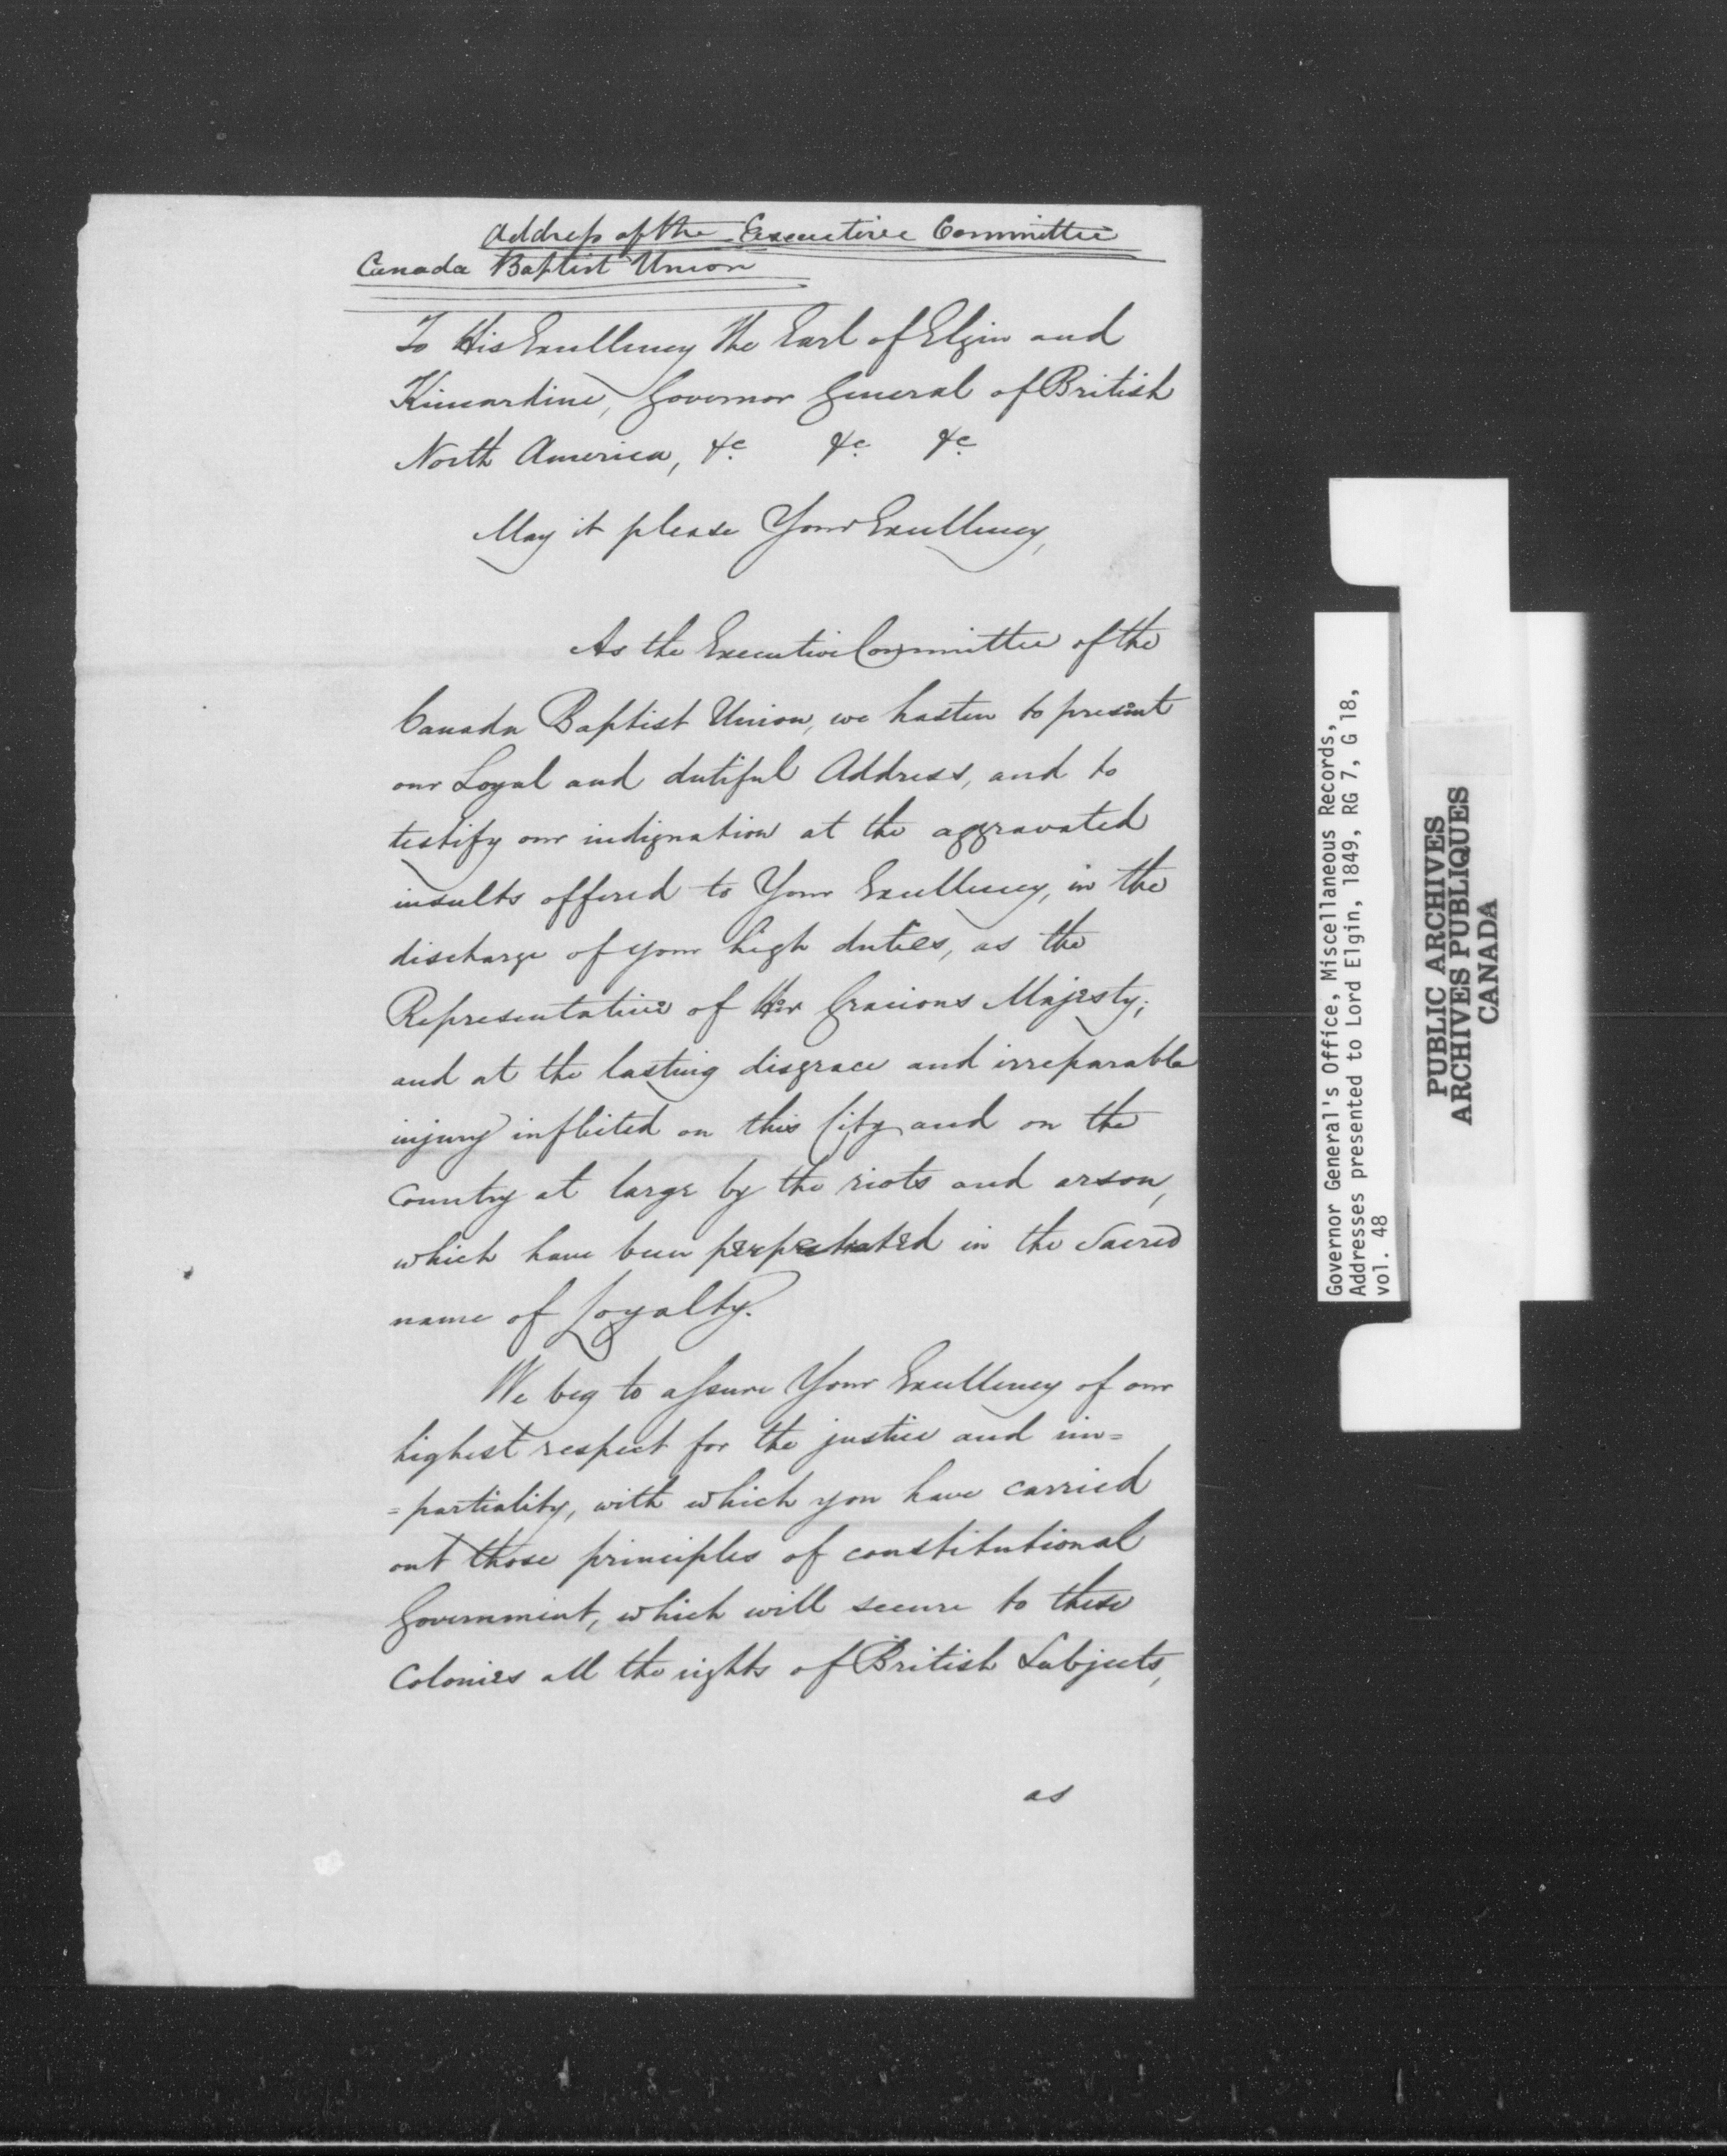 Address of the Executive Committee
Canada Baptist Union
To His Excellency the Earl of Elgin and
Kincardine, Governor General of British
North America, &c. &c. &c.
May it please Your Excellency,
As the Executive Committee of the
Canada Baptist Union, we hasten to present
our Loyal and dutiful Address, and to
testify our indignation at the aggravated
insults offered to Your Excellency, in the
discharge of your high duties, as the
Representative of Her Gracious Majesty;
and at the lasting disgrace and irreparable
injury inflicted on this City and on the
Country at large by the riots and arson,
which have been perpetrated in the Sacred
name of Loyalty.
We beg to assure Your Excellency of our
highest respect for the justice and im=
=partiality, with which you have carried
out those principles of constitutional
Government, which will secure to these
Colonies all the rights of British Subjects,
as
Governor General's Office, Miscellaneous Records,
Addresses presented to Lord Elgin, 1849, RG 7, G 18,
vol. 48
PUBLIC ARCHIVES
ARCHIVES PUBLIQUES
CANADA